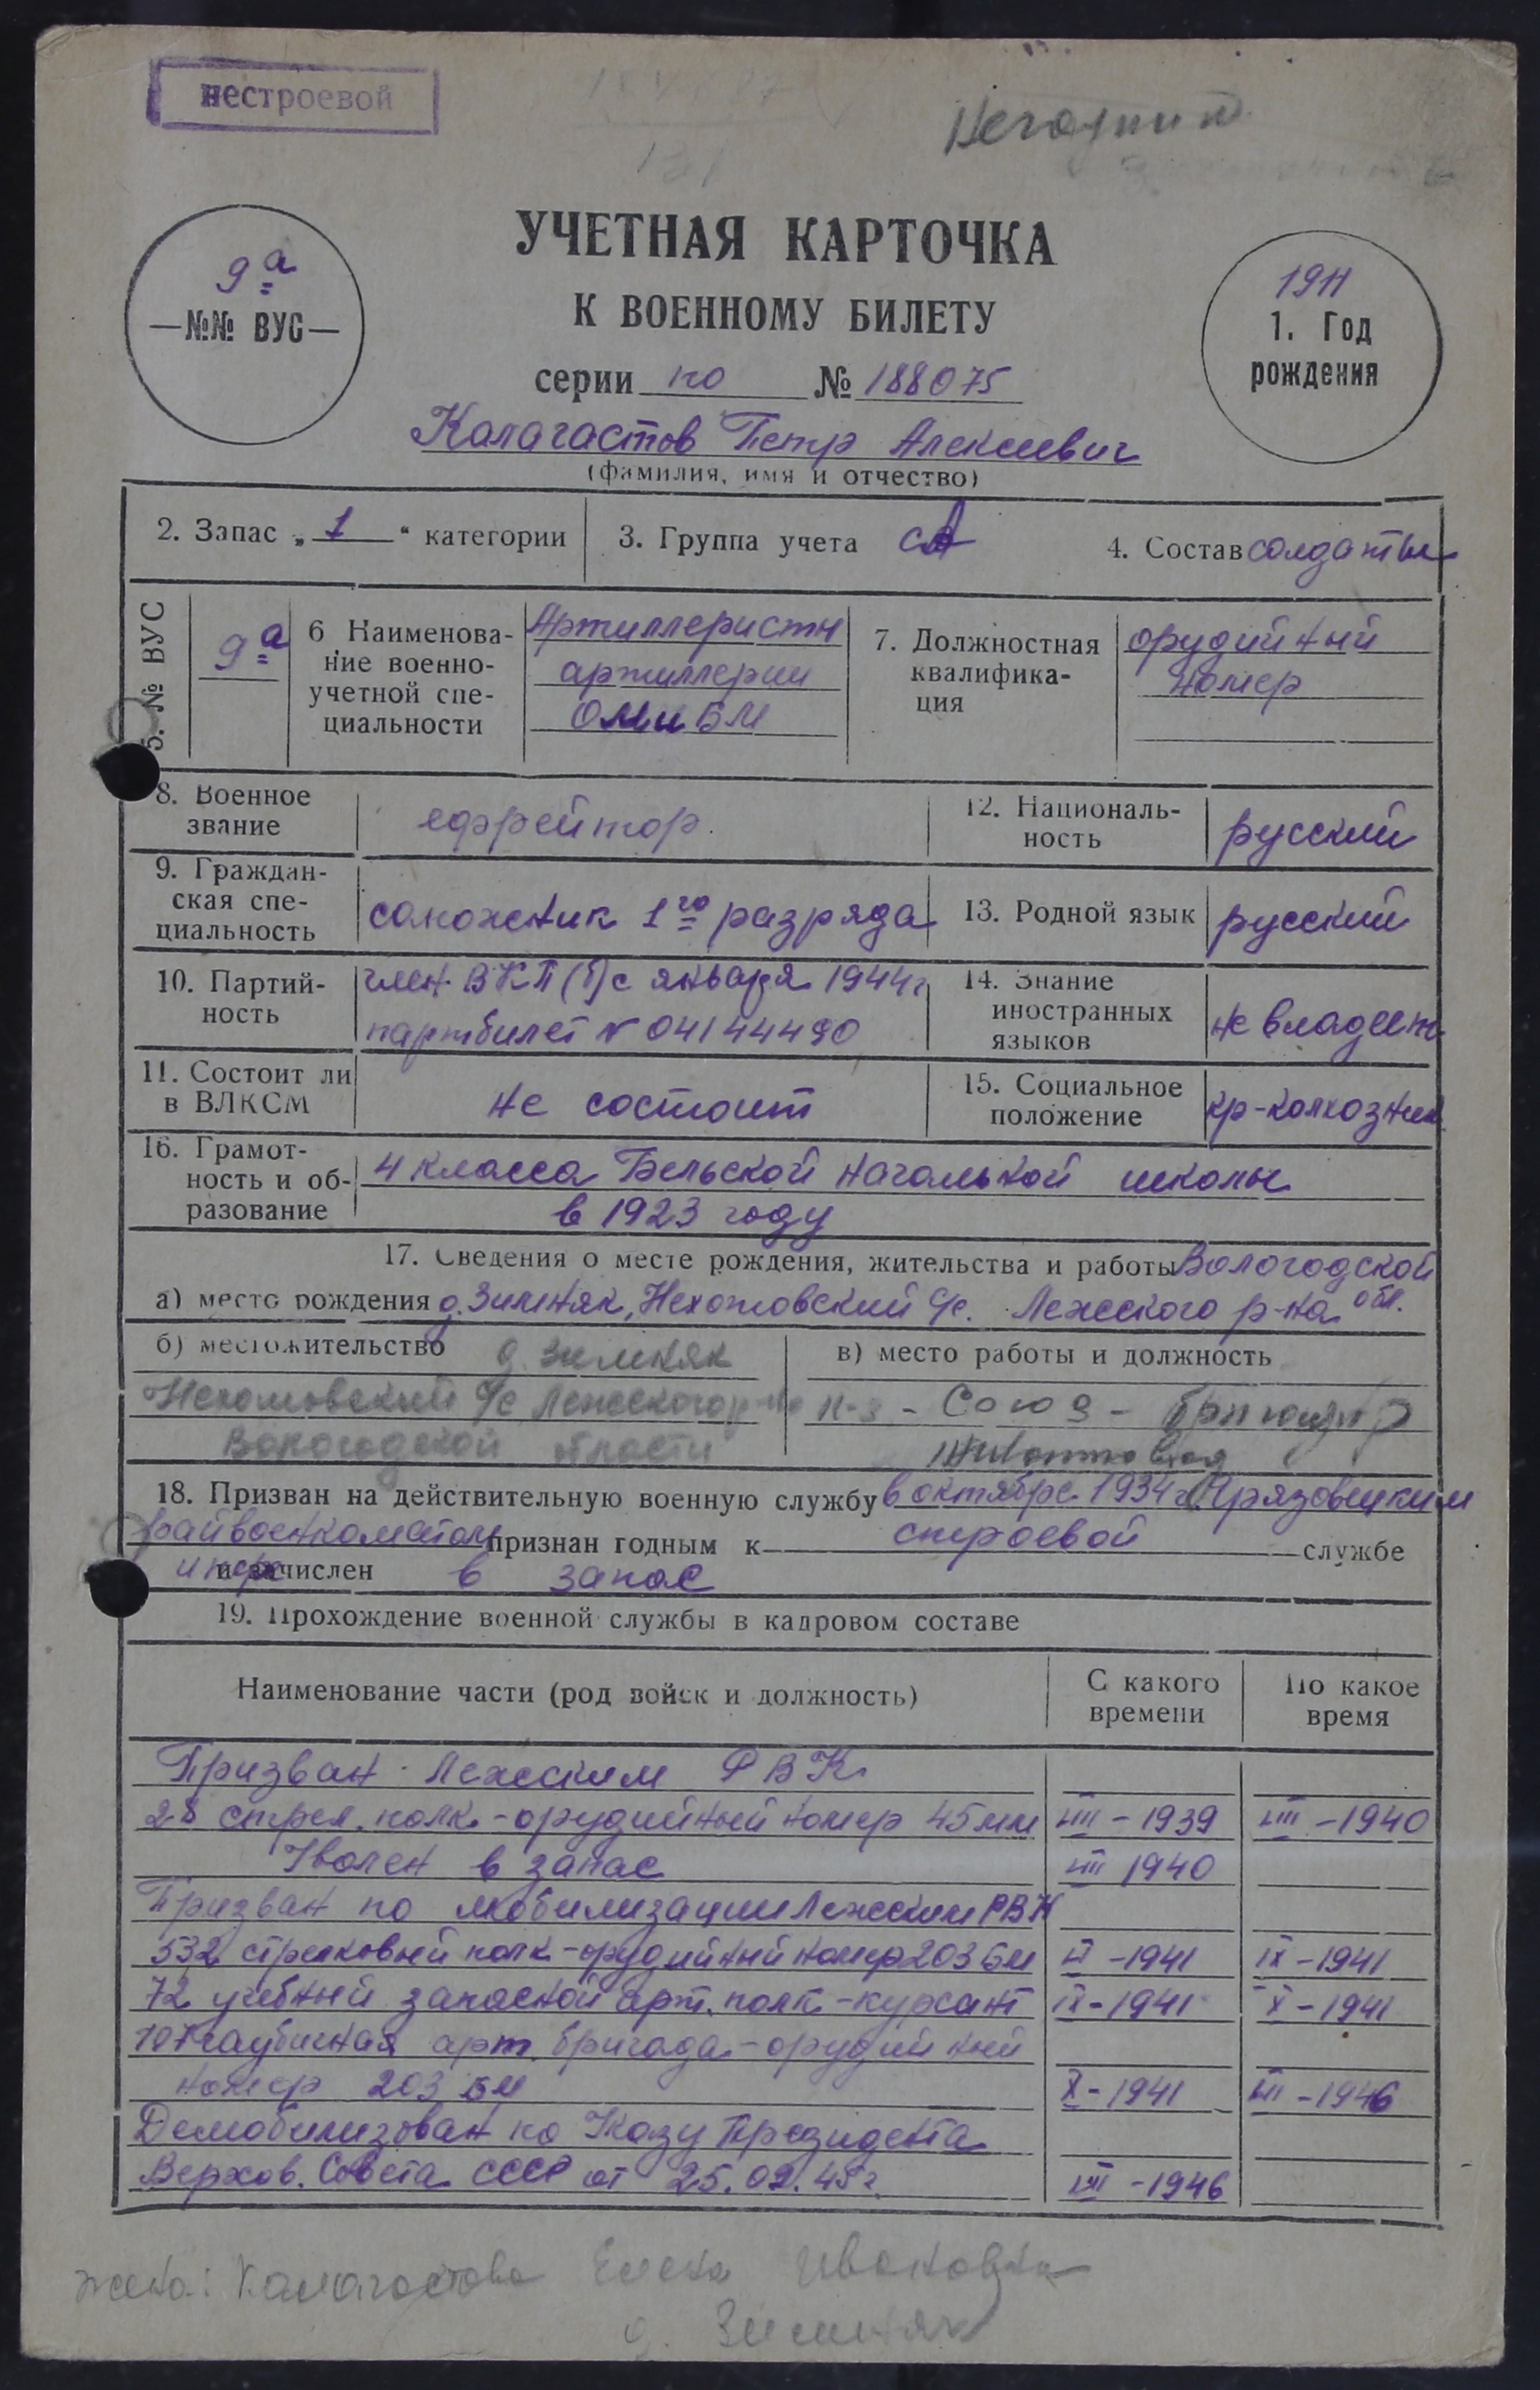 нестроевой
Негодный
УЧЕТНАЯ КАРТОЧКА
К ВОЕННОМУ БИЛЕТУ
9а
—№№ ВУС—
1911
1. Год
рождения
серии по № 188075
Калагастов Петр Алексеевич
(фамилия, имя и отчество)
2. Запас „1“ категории
3. Группа учета СА
4. Состав солдаты
5. № ВУС
9а
6 Наименова-
ние военно-
учетной спе-
циальности
Артиллеристы
артиллерии
ОМ и БМ
7. Должностная
квалифика-
ция
орудийный
номер
8. Военное
звание
ефрейтор.
12. Националь-
ность
русский
9. Граждан-
ская спе-
циальность
сапожник 1го разряда
13. Родной язык
русский
10. Партий-
ность
член ВКП(б) с января 1944г
партбилет № 04144490
14. Знание
иностранных
языков
не владеет
11. Состоит ли
в ВЛКСМ
не состоит
15. Социальное
положение
кр-колхозник
16. Грамот-
ность и об-
разование
4 класса Бельской начальной школы
в 1923 году
17. Сведения о месте рождения, жительства и работы Вологодской
а) место рождения д. Зимняк, Нехотовский с/с. Лежского р-на обл.
б) местожительство д. Зимняк
Нехотовский с/с Лежского р-на
Вологодской области
в) место работы и должность
к-з - Союз - бригадир
18. Призван на действительную военную службу в октябре 1934 г. Грязовецким
райвоенкоматом признан годным к строевой службе
и зачислен в запас
19. Прохождение военной службы в кадровом составе
Наименование части (род войск и должность)
С какого
времени
По какое
время
Призван Лежским РВК
28 стрел. полк - орудийный номер 45мм VIII - 1939 VIII - 1940
Уволен в запас VIII 1940
Призван по мобилизации Лежским РВК
532 стрелковый полк - орудийный номер 203 БМ VI - 1941 IX - 1941
72 учебный запасной арт. полк - курсант IX - 1941 X - 1941
107 гаубичная арт. бригада - орудийный
номер 203 БМ X - 1941 III - 1946
Демобилизован по Указу Президента
Верхов. Совета СССР от 25.09.45г. III - 1946
жена: Калагастова Елена Ивановна
д. Зимняк